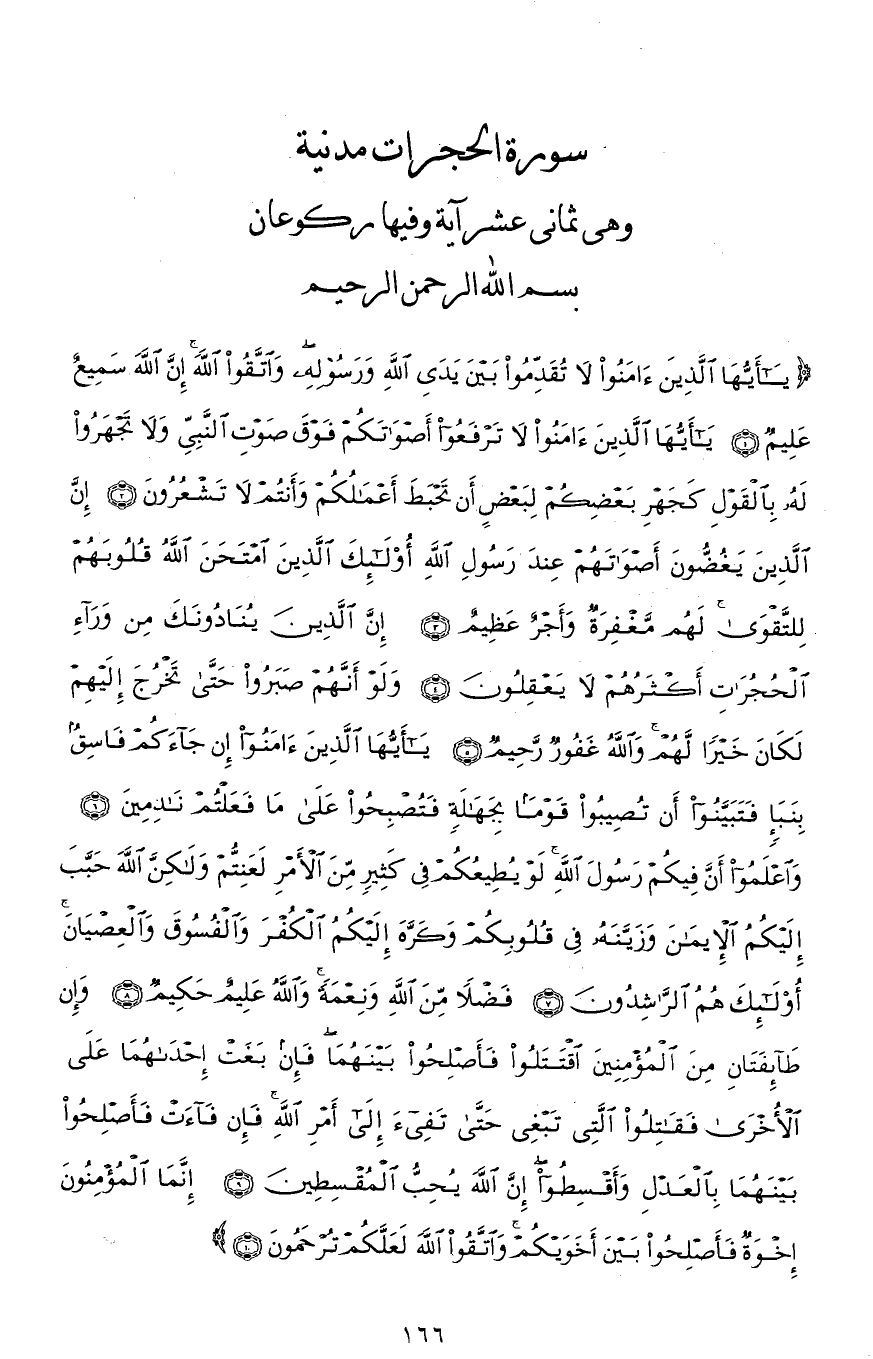 سورة الحجرات مدنية
وهى ثمانى عشر آية وفيها ركوعان
بسم الله الرحمن الرحيم
﴿ يَـٰٓأَيُّهَا ٱلَّذِينَ ءَامَنُوا۟ لَا تُقَدِّمُوا۟ بَيْنَ يَدَىِ ٱللَّهِ وَرَسُولِهِۦۖ وَٱتَّقُوا۟ ٱللَّهَۚ إِنَّ ٱللَّهَ سَمِيعٌ
عَلِيمٌ ١ يَـٰٓأَيُّهَا ٱلَّذِينَ ءَامَنُوا۟ لَا تَرْفَعُوٓا۟ أَصْوَٰتَكُمْ فَوْقَ صَوْتِ ٱلنَّبِىِّ وَلَا تَجْهَرُوا۟
لَهُۥ بِٱلْقَوْلِ كَجَهْرِ بَعْضِكُمْ لِبَعْضٍ أَن تَحْبَطَ أَعْمَـٰلُكُمْ وَأَنتُمْ لَا تَشْعُرُونَ ٢ إِنَّ
ٱلَّذِينَ يَغُضُّونَ أَصْوَٰتَهُمْ عِندَ رَسُولِ ٱللَّهِ أُو۟لَـٰٓئِكَ ٱلَّذِينَ ٱمْتَحَنَ ٱللَّهُ قُلُوبَهُمْ
لِلتَّقْوَىٰۚ لَهُم مَّغْفِرَةٌ وَأَجْرٌ عَظِيمٌ ٣ إِنَّ ٱلَّذِينَ يُنَادُونَكَ مِن وَرَآءِ
ٱلْحُجُرَٰتِ أَكْثَرُهُمْ لَا يَعْقِلُونَ ٤ وَلَوْ أَنَّهُمْ صَبَرُوا۟ حَتَّىٰ تَخْرُجَ إِلَيْهِمْ
لَكَانَ خَيْرًا لَّهُمْۚ وَٱللَّهُ غَفُورٌ رَّحِيمٌ ٥ يَـٰٓأَيُّهَا ٱلَّذِينَ ءَامَنُوٓا۟ إِن جَآءَكُمْ فَاسِقٌۢ
بِنَبَإٍ فَتَبَيَّنُوٓا۟ أَن تُصِيبُوا۟ قَوْمَۢا بِجَهَـٰلَةٍ فَتُصْبِحُوا۟ عَلَىٰ مَا فَعَلْتُمْ نَـٰدِمِينَ ٦
وَٱعْلَمُوٓا۟ أَنَّ فِيكُمْ رَسُولَ ٱللَّهِۚ لَوْ يُطِيعُكُمْ فِى كَثِيرٍ مِّنَ ٱلْأَمْرِ لَعَنِتُّمْ وَلَـٰكِنَّ ٱللَّهَ حَبَّبَ
إِلَيْكُمُ ٱلْإِيمَـٰنَ وَزَيَّنَهُۥ فِى قُلُوبِكُمْ وَكَرَّهَ إِلَيْكُمُ ٱلْكُفْرَ وَٱلْفُسُوقَ وَٱلْعِصْيَانَۚ
أُو۟لَـٰٓئِكَ هُمُ ٱلرَّٰشِدُونَ ٧ فَضْلًا مِّنَ ٱللَّهِ وَنِعْمَةًۚ وَٱللَّهُ عَلِيمٌ حَكِيمٌ ٨ وَإِن
طَآئِفَتَانِ مِنَ ٱلْمُؤْمِنِينَ ٱقْتَتَلُوا۟ فَأَصْلِحُوا۟ بَيْنَهُمَاۖ فَإِنۢ بَغَتْ إِحْدَىٰهُمَا عَلَى
ٱلْأُخْرَىٰ فَقَـٰتِلُوا۟ ٱلَّتِى تَبْغِى حَتَّىٰ تَفِىٓءَ إِلَىٰٓ أَمْرِ ٱللَّهِۚ فَإِن فَآءَتْ فَأَصْلِحُوا۟
بَيْنَهُمَا بِٱلْعَدْلِ وَأَقْسِطُوٓا۟ۖ إِنَّ ٱللَّهَ يُحِبُّ ٱلْمُقْسِطِينَ ٩ إِنَّمَا ٱلْمُؤْمِنُونَ
إِخْوَةٌ فَأَصْلِحُوا۟ بَيْنَ أَخَوَيْكُمْۚ وَٱتَّقُوا۟ ٱللَّهَ لَعَلَّكُمْ تُرْحَمُونَ ١٠ ﴾
١٦٦